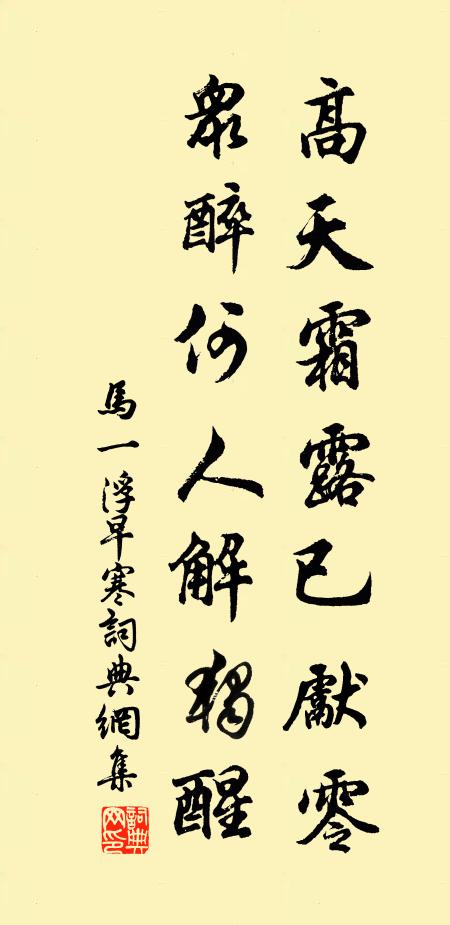 高天霜露已獻零
眾醉何人解獨醒
馬一浮早寒詞典網集
詞典網印